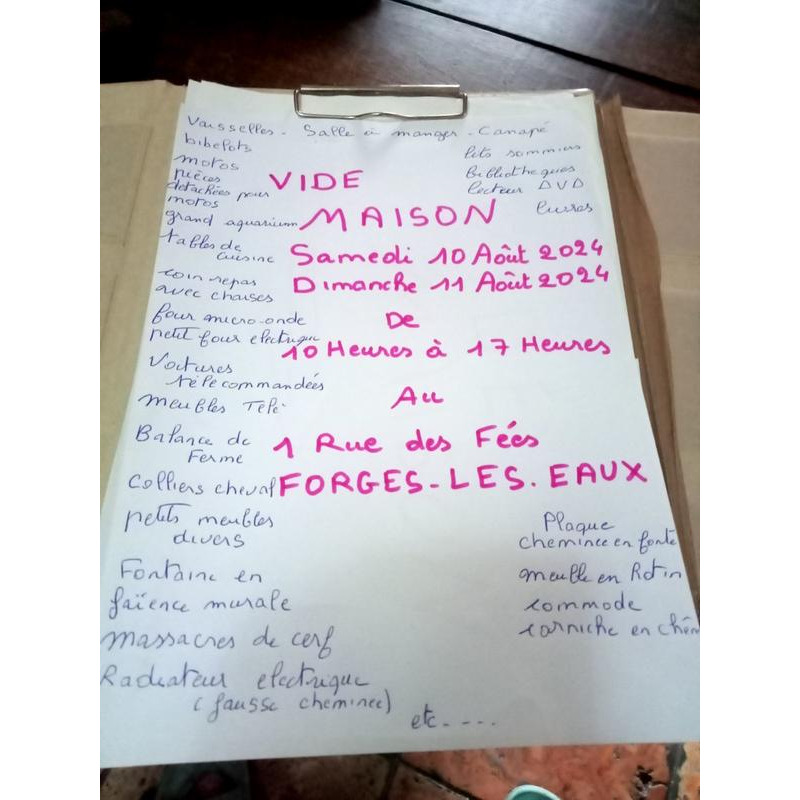 Vaisselles - Salle à manger - Canapé
bibelots
motos
pièces
détachées pour
motos
grand aquarium
tables de
cuisine
coin repas
avec chaises
four micro-onde
petit four electrique
Voitures
télécommandées
meubles Télé
Balance de
Ferme
Colliers cheval
petits meubles
divers
Fontaine en
faïence murale
massacres de cerf
Radiateur electrique
(fausse cheminee)
etc - - - -
lits sommiers
Bibliotheques
lecteur DVD
livres
VIDE
MAISON
Samedi 10 Août 2024
Dimanche 11 Août 2024
De
10 Heures à 17 Heures
Au
1 Rue des Fées
FORGES-LES.EAUX
Plaque
cheminee en fonte
meuble en Rotin
commode
corniche en chên